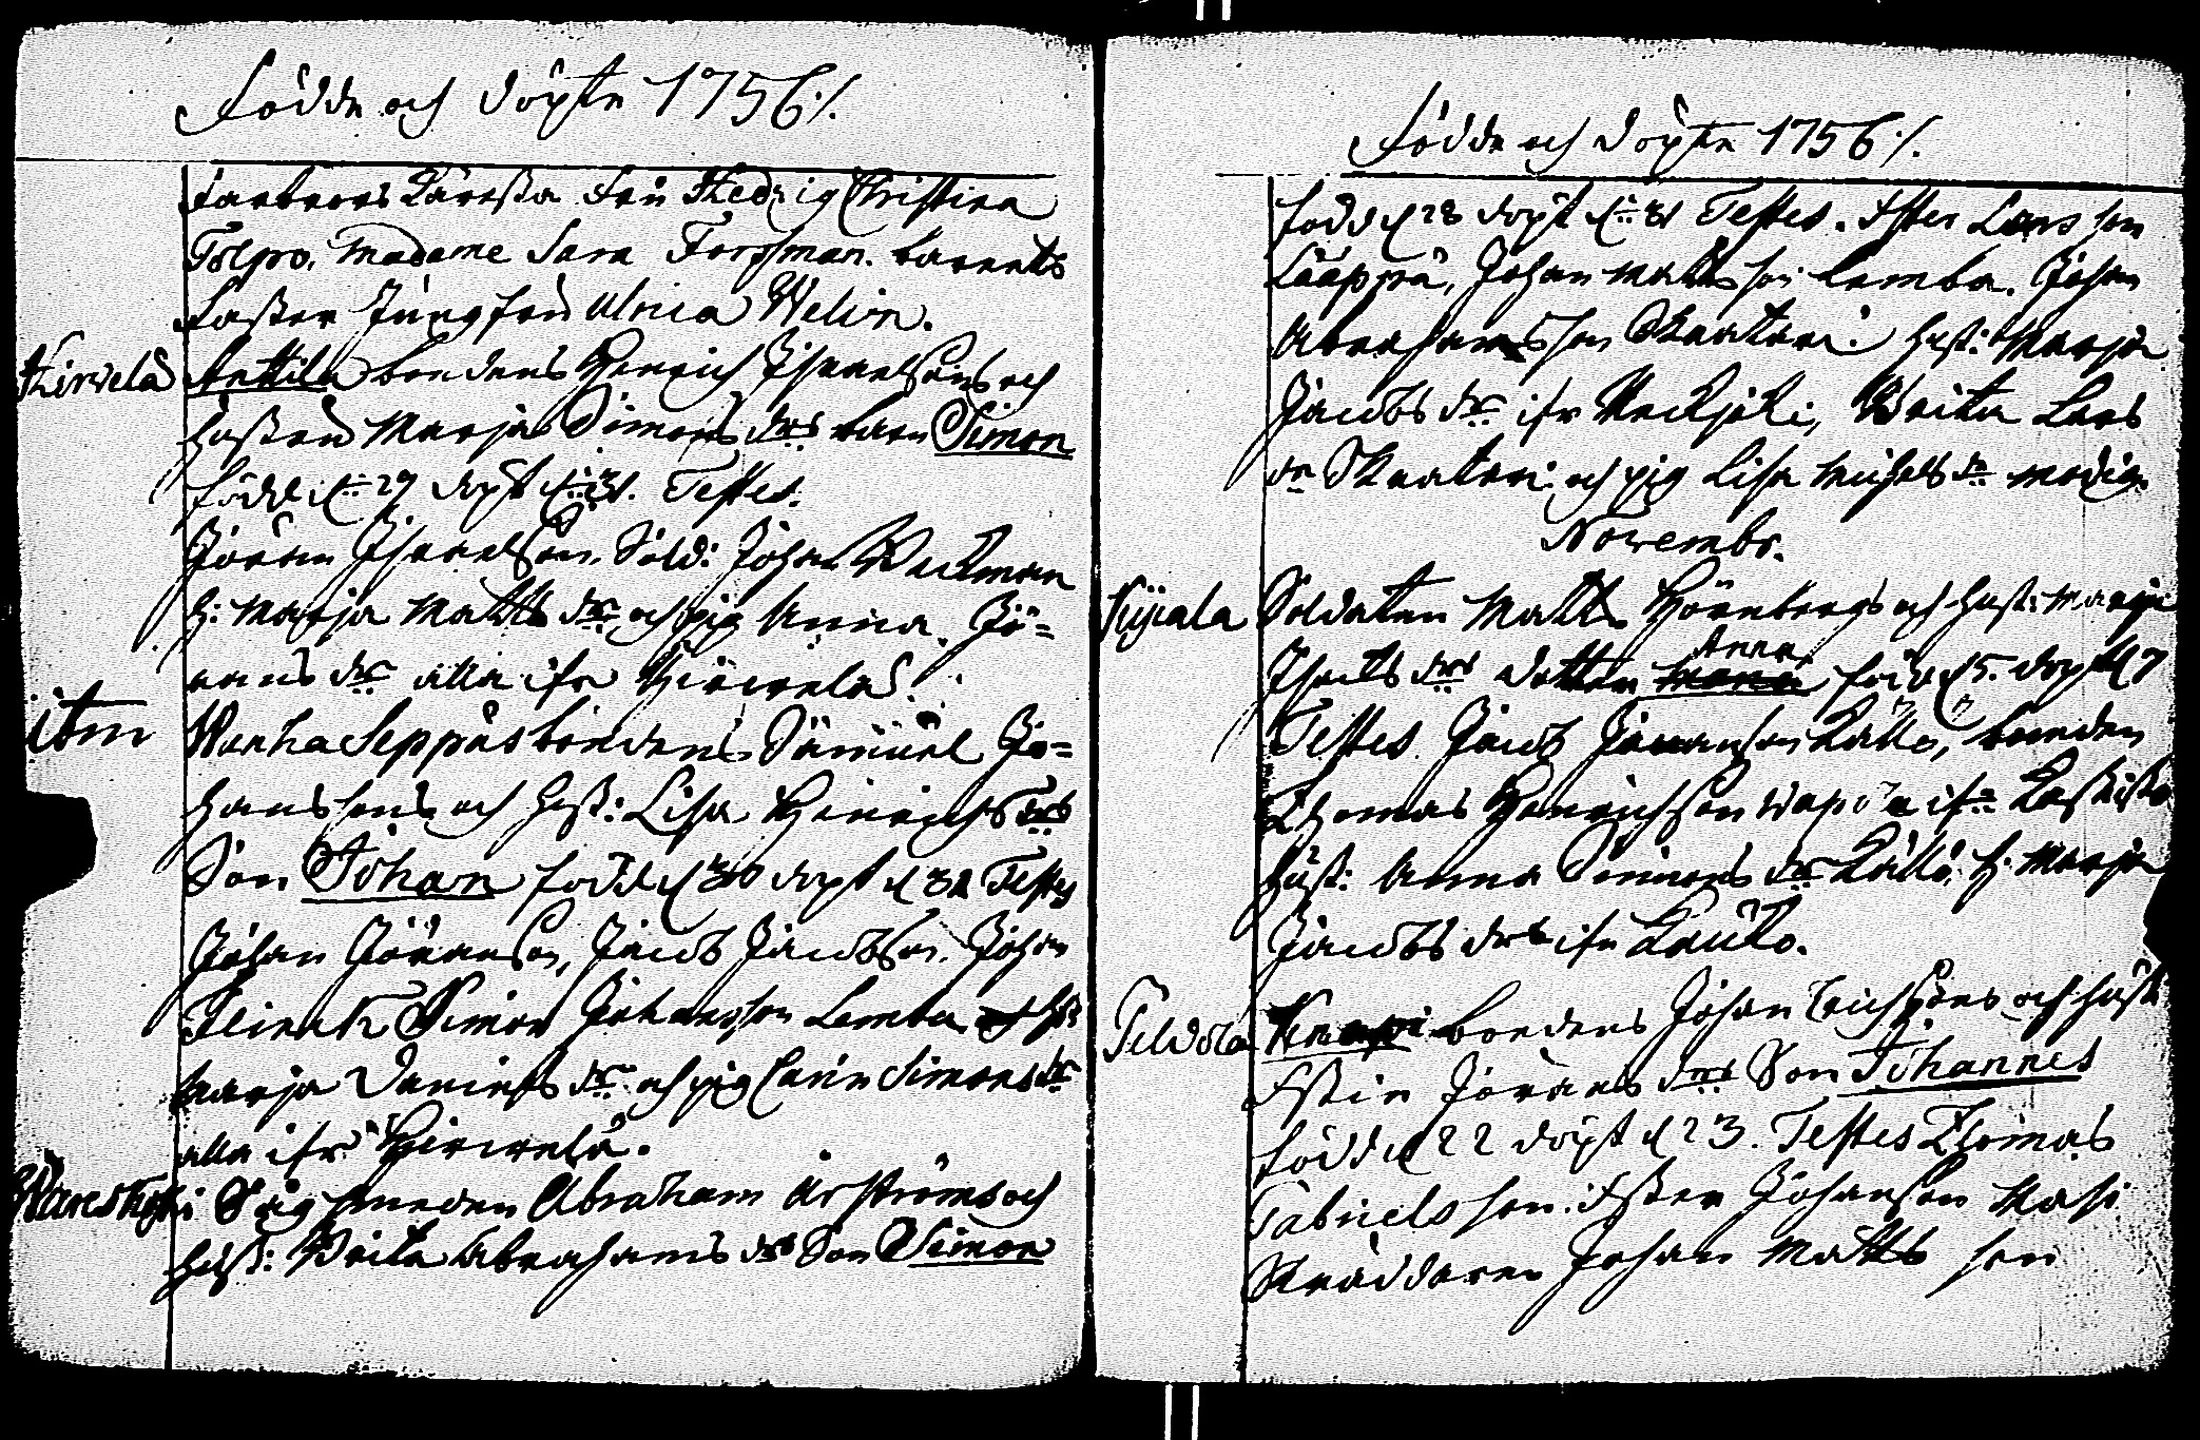 Födde och döpte 1756 ./.
Farbrors Käresta Fru Hedvig Christina
Polpo, Madame Sara Forssman. barnets
Faster Jungfru Ulrica Welin.
Hirvelä Anttila bondens Henrich Israelssons och
hustrus Marja Simons drs barn Simon
född d: 29 döpt d: 31. Testes.
Jöran Israelsson, Sold: Johan Wackman
h: Marja Matts dr och pig Anna Jö=
rans dr alla ifr Hirvelä.
itm Wanha Seppäs bondens Samuel Jo=
hanssons och hust: Lisa Henrichs drs
Son Johan född d 30 döpt d 31 Testes
Johan Jöransson, Jacob Jacobsson, Johan
Flinck Simon Johansson Lemba
Marja Daniels dr och pig Carin Simons dr
alla ifr Hirvelä.
Såg smeden Abraham Arströms och
hust: Brita Abrahams drs Son Simon
Födde och döpte 1756 ./.
född d 28 döpt d: 31 Testes. Lars son
Johan Matts son Lemba. Johan
Abrahams son Skratari. hust: Marja
Jacobs dr ifr Brita Lars
dr Skratari och pig Lisa Michels dr
Novembr.
Soldaten Matts Hörnbergs och hust: Marja
drs dotter Anna född d 5. döpt d 7
Testes Jacob Jöransson Källo, bonden
Thomas Henrichsson ifr
hust: Anna Simons dr Källo, h: Marja
Jacobs dr ifr Kauko.
bondens Johan Erichssons och hust
Jörans drs Son Johannes
född d 22 döpt d 23. Testes Thomas
Gabriels son. Johansson
Skräddaren Johan Matts son